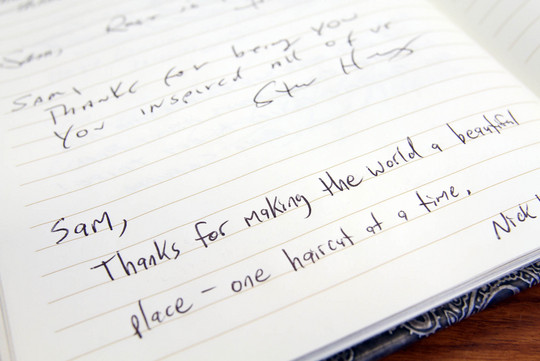 Sam,
Sam,
Thanks for being you
You inspired all of us
Sam,
Thanks for making the world a beautiful
place – one haircut at a time.
Nick